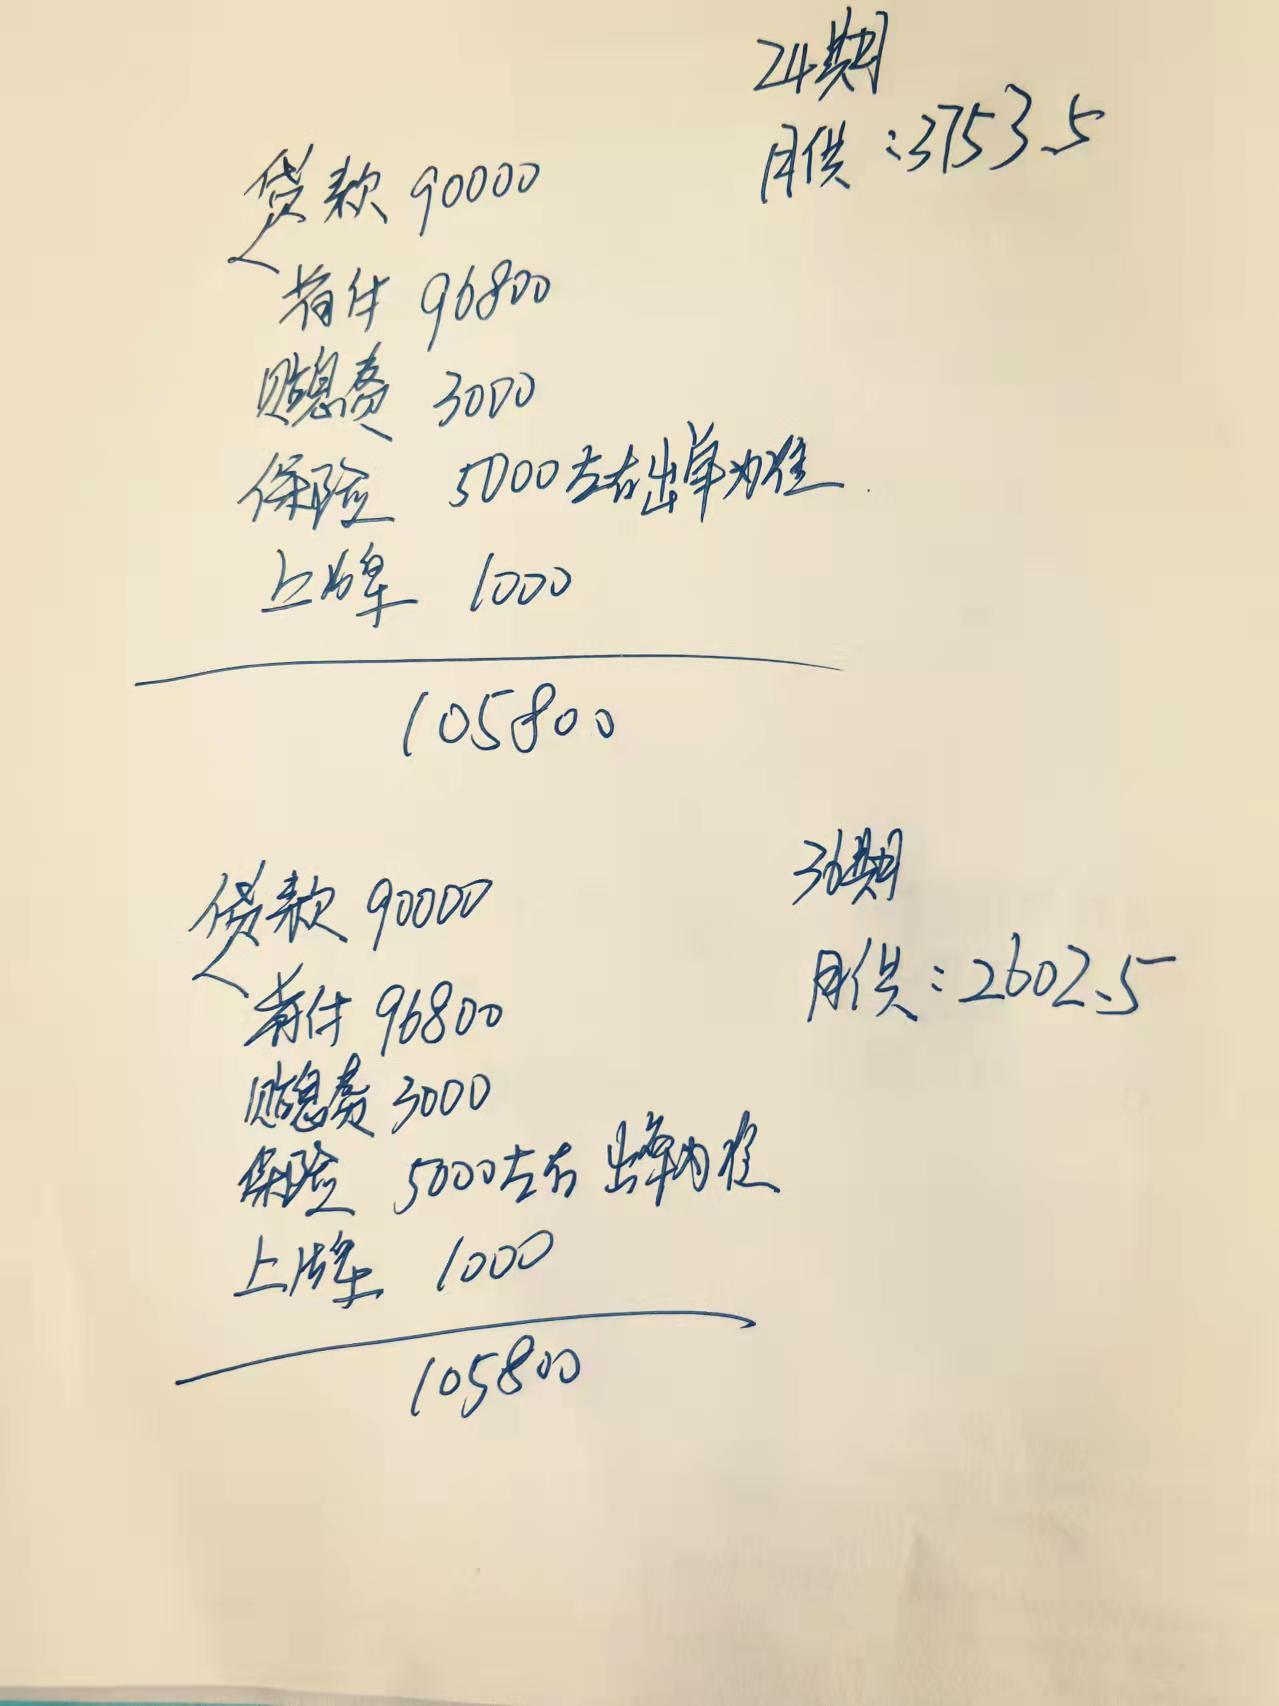 24期
月供：3753.5
贷款 90000
首付 96800
贴息费 3000
保险 5000左右出单为准
上牌 1000
105800
36期
月供：2602.5
贷款 90000
首付 96800
贴息费 3000
保险 5000左右 出单为准
上牌 1000
105800